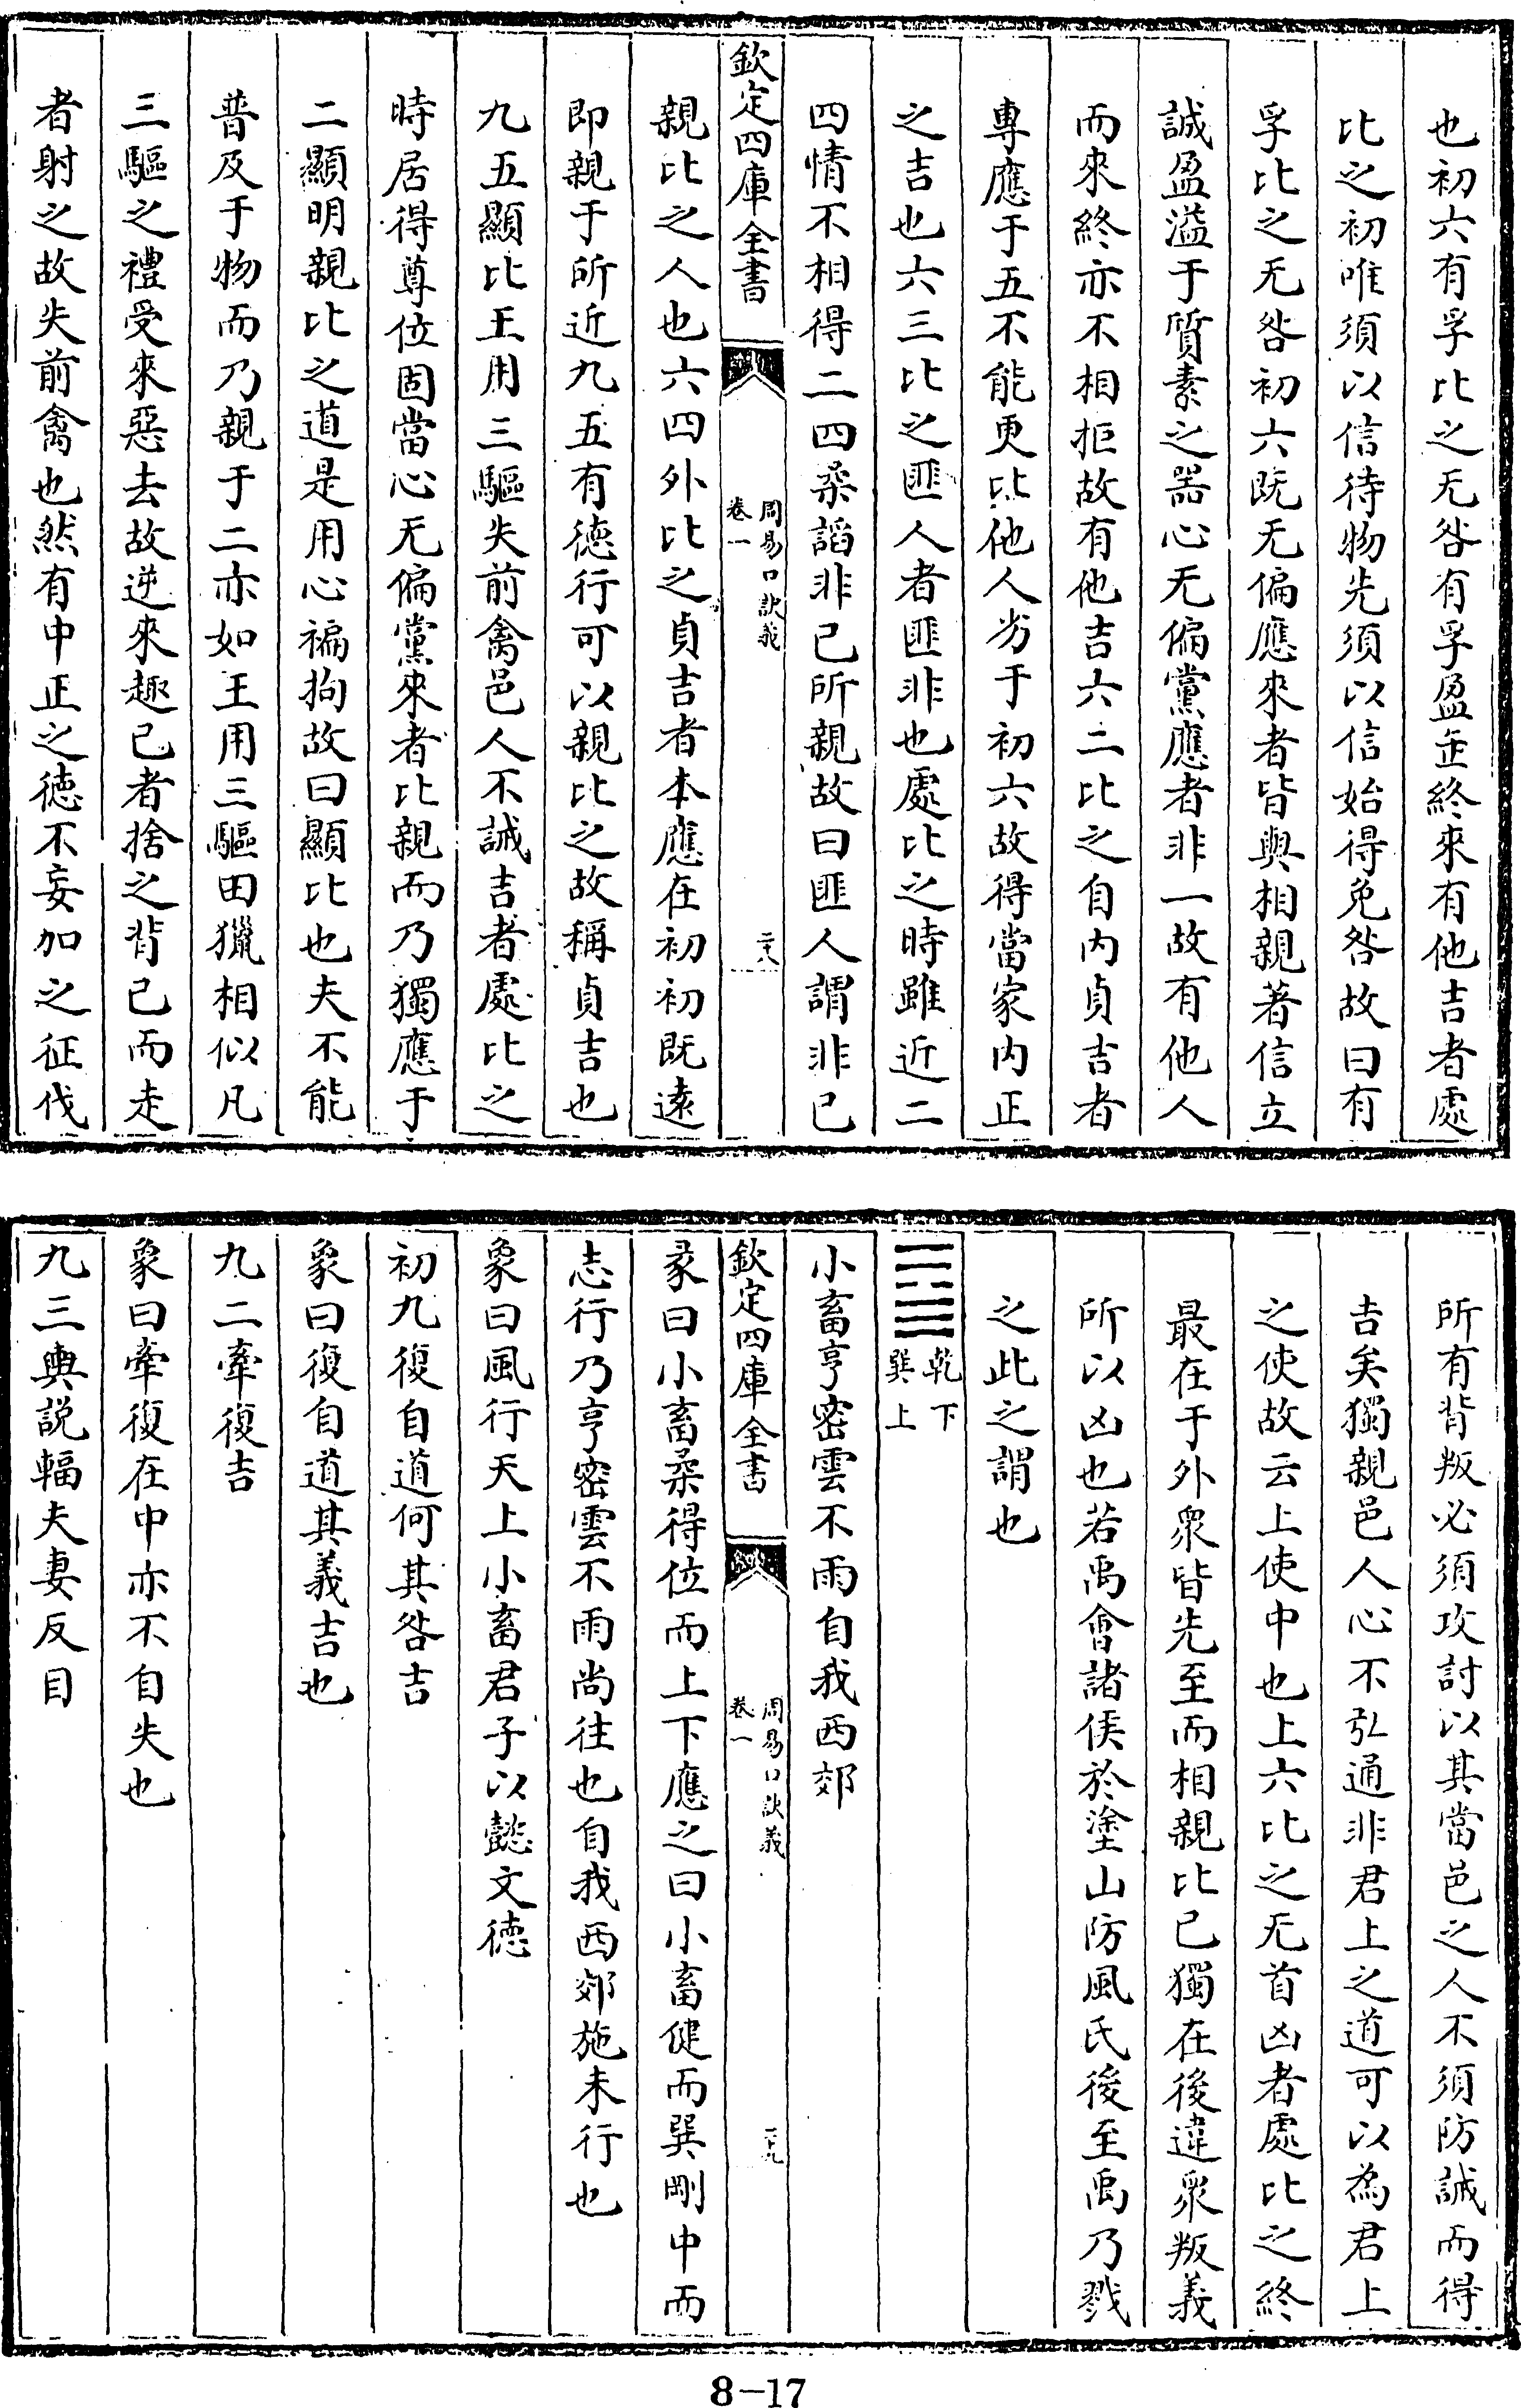 也初六有孚比之无咎有孚盈缶終來有他吉者處
比之初唯須以信待物先須以信始得免咎故曰有
孚比之无咎初六既无偏應來者皆與相親著信立
誠盈溢于質素之器心无偏黨應者非一故有他人
而來終亦不相拒故有他吉六二比之自内貞吉者
專應于五不能更比他人劣于初六故得當家内正
之吉也六三比之匪人者匪非也處比之時雖近二
四情不相得二四柔謟非已所親故曰匪人謂非已
欽定四庫全書
周易口訣義
卷一
二十八
親比之人也六四外比之貞吉者本應在初初既逺
即親于所近九五有徳行可以親比之故稱貞吉也
九五顯比王用三驅失前禽邑人不誡吉者處比之
時居得尊位固當心无偏黨來者比親而乃獨應于
二顯明親比之道是用心褊拘故曰顯比也夫不能
普及于物而乃親于二亦如王用三驅田獵相似凡
三驅之禮受來惡去故逆來趣已者捨之背已而走
者射之故失前禽也然有中正之徳不妄加之征伐
所有背叛必須攻討以其當邑之人不須防誡而得
吉矣獨親邑人心不弘通非君上之道可以為君上
之使故云上使中也上六比之无首凶者處比之終
最在于外衆皆先至而相親比已獨在後違衆叛義
所以凶也若禹會諸侯於塗山防風氏後至禹乃戮
之此之謂也
䷈乾下
巽上
小畜亨密雲不雨自我西郊
欽定四庫全書
周易口訣義
卷一
二十九
彖曰小畜柔得位而上下應之曰小畜健而巽剛中而
志行乃亨密雲不雨尚往也自我西郊施未行也
象曰風行天上小畜君子以懿文徳
初九復自道何其咎吉
象曰復自道其義吉也
九二牽復吉
象曰牽復在中亦不自失也
九三輿説輻夫妻反目
8-17